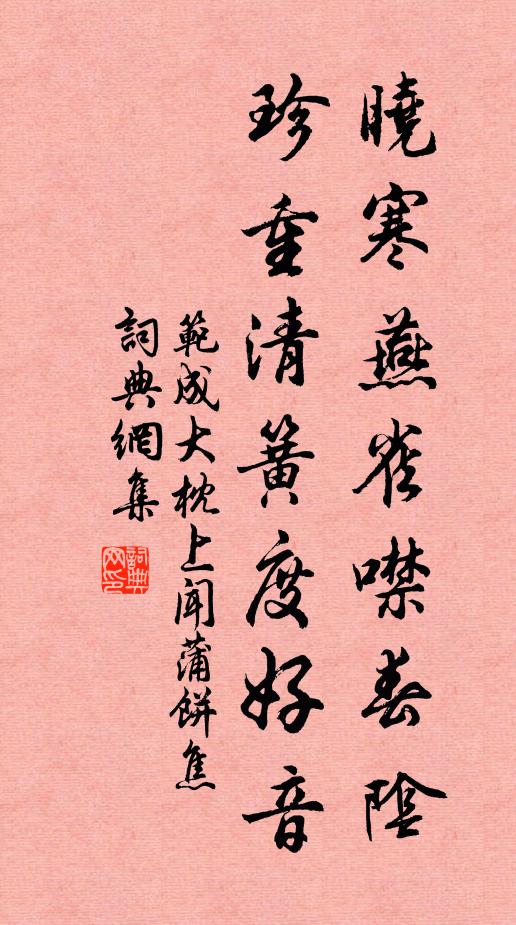 曉寒燕雀噤春陰
珍重清簧度好音
範成大枕上聞蒲餅焦
詞典網集
詞典網印